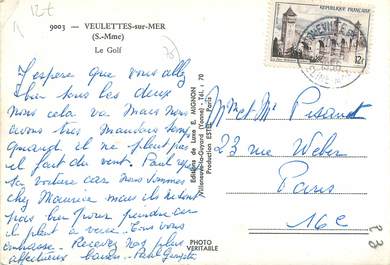 12f
9003 - VEULETTES-sur-MER
(S.-Mme)
Le Golf
J'espère que vous allez
bien tous les deux
nous cela va mais nous
avons très mauvais temps
quand il ne pleut pas
il fait du vent. Paul
sa voiture car nous sommes
chez Maurice mais ils n'ont
pas
il pleut à verse. Tous vous
embrasse. Recevez nos plus
affectueux baisers. Paul
Editions de Luxe E. MIGNON
Villeneuve-la-Guyard (Yonne) - Tél. : 70
Production ESTEL - Paris
PHOTO VERITABLE
REPUBLIQUE FRANÇAISE
12F
Mr et Me Pisant
23 rue Weber
Paris
16e